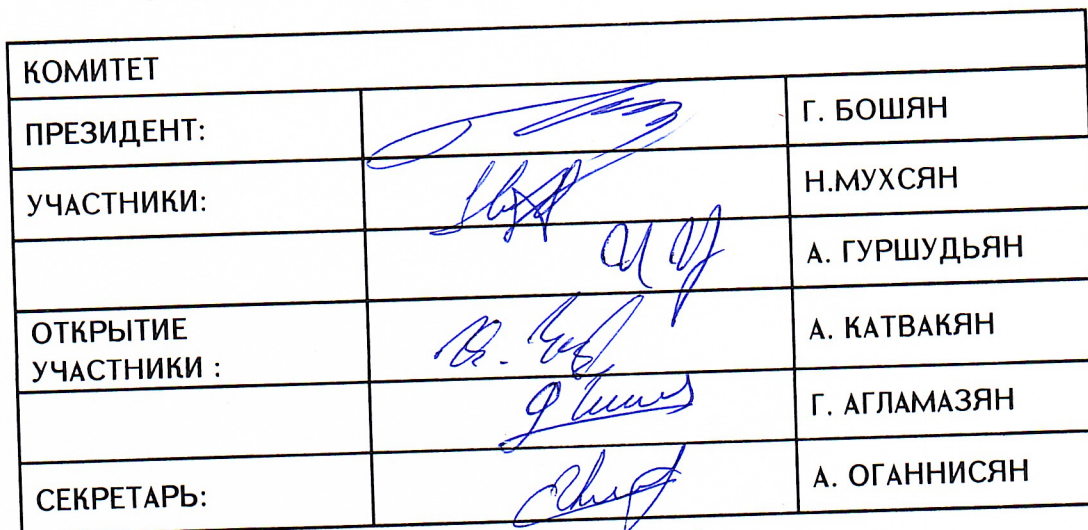 КОМИТЕТ
ПРЕЗИДЕНТ: Г. БОШЯН
УЧАСТНИКИ: Н.МУХСЯН
А. ГУРШУДЬЯН
ОТКРЫТИЕ
УЧАСТНИКИ : А. КАТВАКЯН
Г. АГЛАМАЗЯН
СЕКРЕТАРЬ: А. ОГАННИСЯН